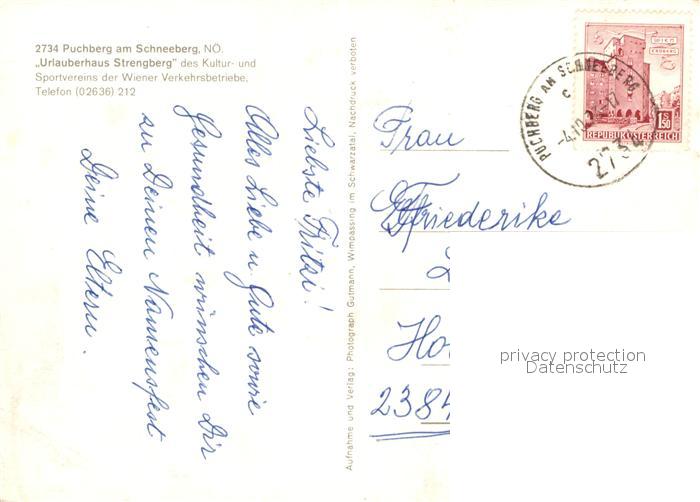 2734 Puchberg am Schneeberg, NÖ.
„Urlauberhaus Strengberg" des Kultur- und
Sportvereins der Wiener Verkehrsbetriebe,
Telefon (02636) 212
Liebste Fritzi!
Alles Liebe u. Gute sowie
Gesundheit wünschen Dir
zu Deinen Namensfest
Deine Eltern.
Aufnahme und Verlag: Photograph Gutmann, Wimpassing im Schwarzatal, Nachdruck verboten
PUCHBERG AM SCHNEEBERG
c
2734
1.50
REPUBLIK ÖSTERREICH
Frau
Friederike
Ho
2384
privacy protection
Datenschutz